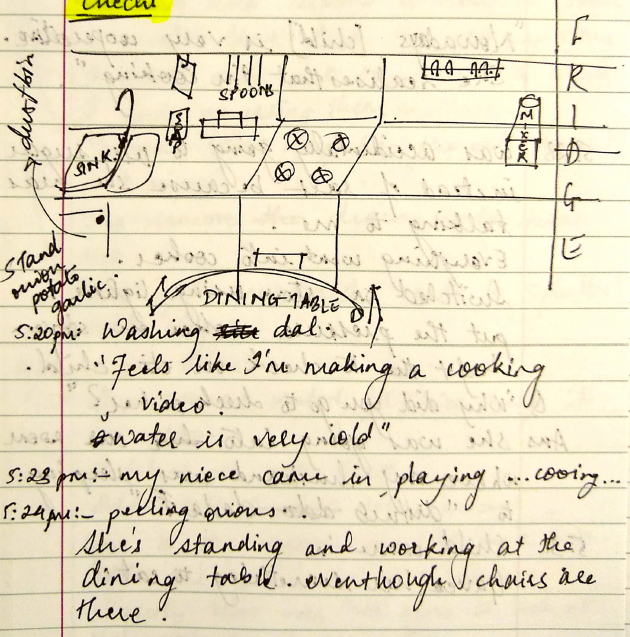 Chechi
FRIDGE
dustbin
SPOONS
SINK
MIXER
Stand
onion
potato
garlic.
DINING TABLE
5:20pm: Washing dal.
"Feels like I'm making a cooking
video.
water is very cold"
5:23 pm:- my niece came in, playing ...cooing...
5:24pm:- peeling onions.
She's standing and working at the
dining table. eventhough chairs are
there.